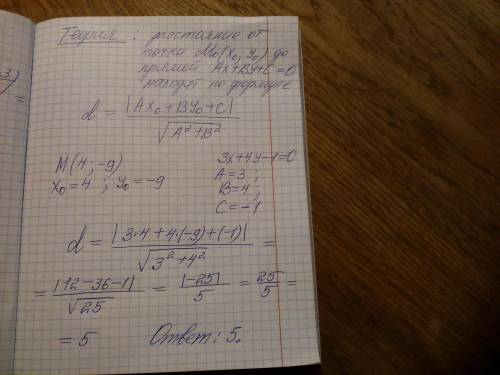 Теория: расстояние от
точки M₀(x₀, y₀) до
прямой Ax+By+C=0
находят по формуле
d = |Ax₀+By₀+C| / √(A²+B²)
M(4;-9) 3x+4y-1=0
x₀=4; y₀=-9 A=3;
B=4;
C=-1
d = |3·4+4·(-9)+(-1)| / √(3²+4²) =
= |12-36-1| / √25 = |-25| / 5 = 25/5 =
= 5 Ответ: 5.